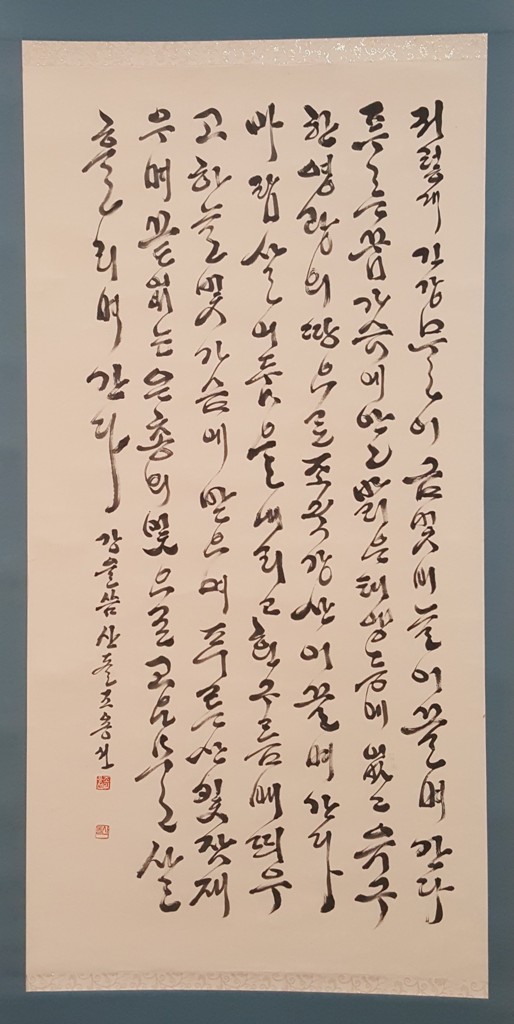 저렇게 긴 강물이 금빛 비늘 이끌며 간다
푸른 꿈 가슴에 안고 밝은 태양 등에 업고 유구
한 영광의 땅으로 조국강산 이끌며 간다
바람 살 어둠을 내리고 흰구름 배 띄우
고 하늘빛 가슴에 받으며 푸른 산빛 잠재
우며 끝없는 은총의 빛으로 고운 물살
흘리며 간다 강물 씀 산돌 조용선